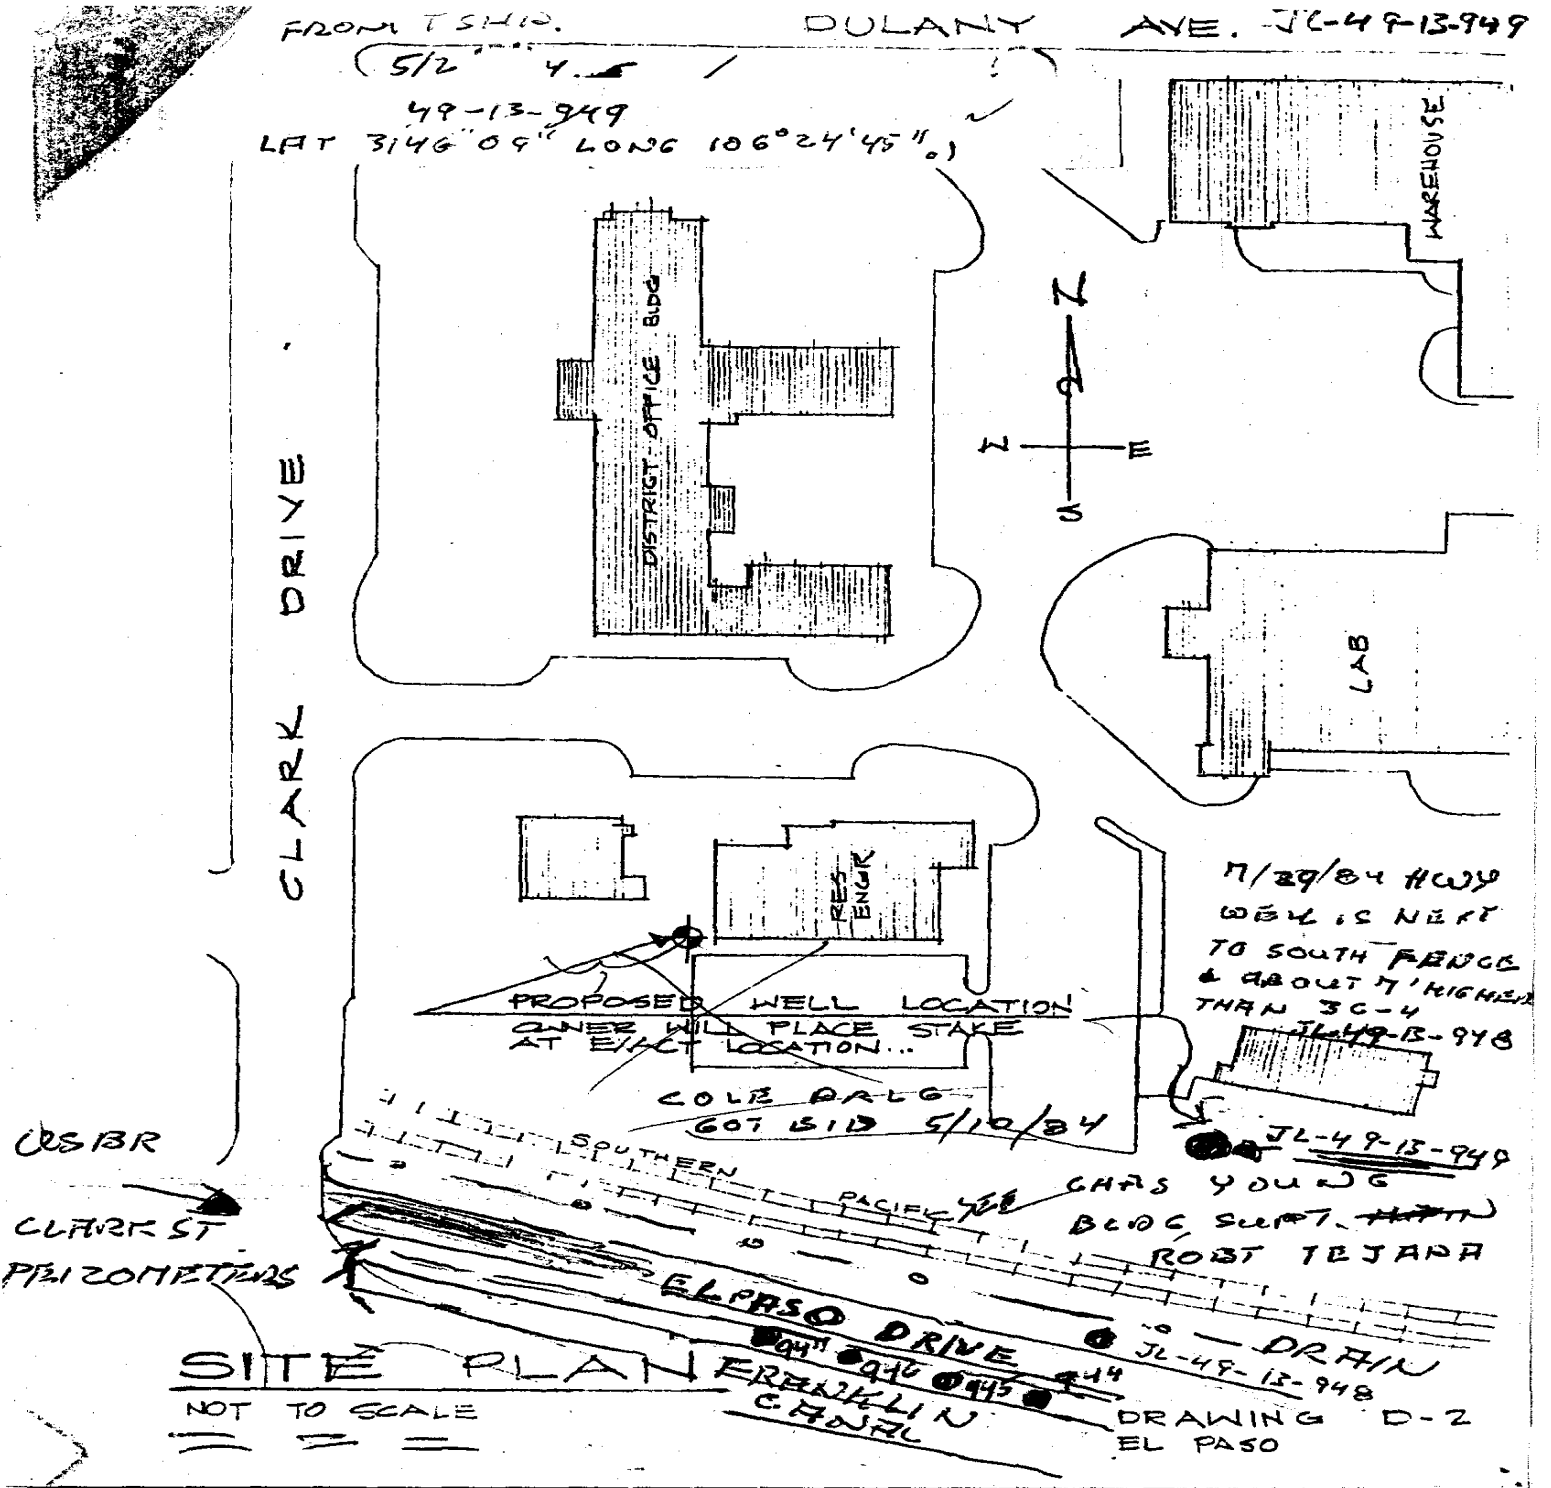 FROM TSHIP.
DULANY AVE. JL-49-13-949
49-13-949
LAT 3146"09" LONG 106°24'45"
WAREHOUSE
DISTRICT OFFICE BLDG
CLARK DRIVE
N
W E
S
LAB
RES
ENGR
7/29/84 HWY
WELL IS NEXT
TO SOUTH FENCE
& ABOUT 7' HIGHER
THAN 3C-4
JL-49-13-948
PROPOSED WELL LOCATION
OWNER WILL PLACE STAKE
AT EXACT LOCATION...
COLE DRLG
GOT BID 5/10/84
JL-49-13-949
USBR
CLARK ST
PEIZOMETERS
SOUTHERN PACIFIC
CHAS YOUNG
BLDG SUPT.
ROBT TEJANA
EL PASO DRIVE
DRAIN
JL-49-13-948
947 946 945 944
FRANKLIN
CANAL
SITE PLAN
NOT TO SCALE
DRAWING D-2
EL PASO